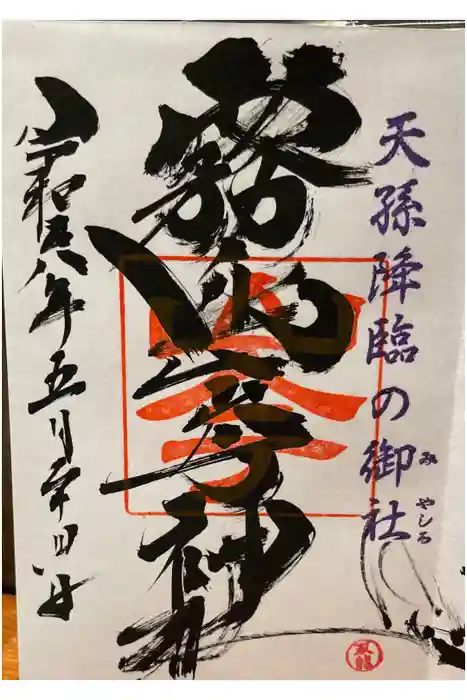 天孫降臨の御社
みやしろ
霧島岑神社
令和六年五月四日